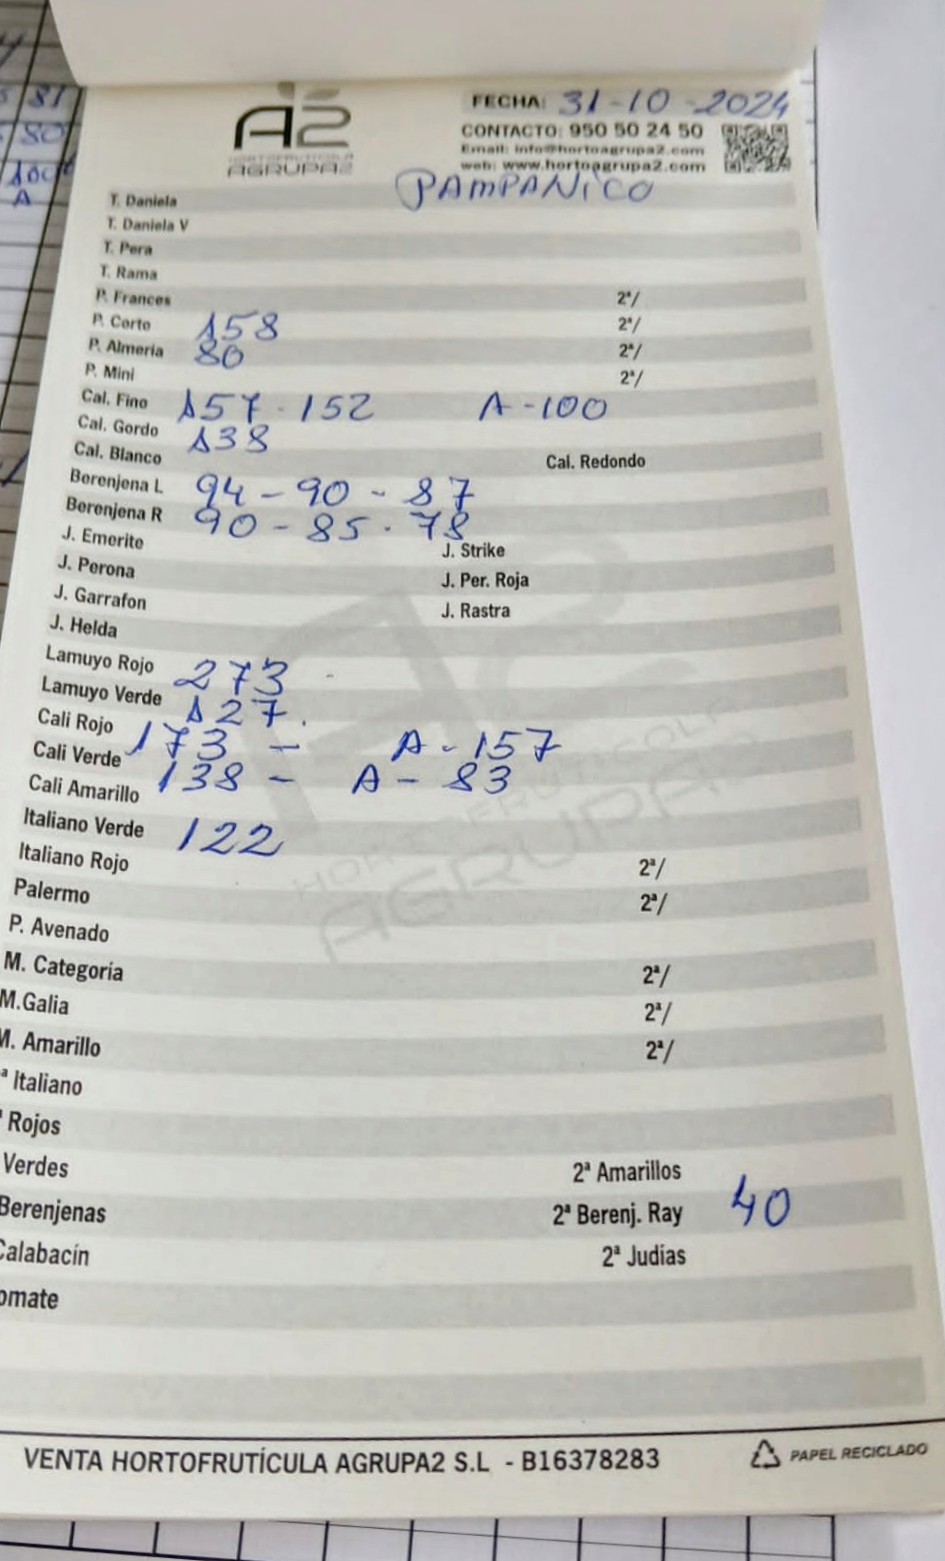 81
80
100
A
A2
HORTOFRUTÍCOLA
AGRUPA2
FECHA: 31-10-2024
CONTACTO: 950 50 24 50
Email: info@hortoagrupa2.com
web: www.hortoagrupa2.com
PAMPANICO
T. Daniela
T. Daniela V
T. Pera
T. Rama
P. Frances 2ª/
P. Corto 158 2ª/
P. Almeria 80 2ª/
P. Mini 2ª/
Cal. Fino 157 - 152 A - 100
Cal. Gordo 138
Cal. Blanco Cal. Redondo
Berenjena L 94 - 90 - 87
Berenjena R 90 - 85 - 78
J. Emerite J. Strike
J. Perona J. Per. Roja
J. Garrafon J. Rastra
J. Helda
Lamuyo Rojo 273
Lamuyo Verde 127.
Cali Rojo 173 - A - 157
Cali Verde 138 - A - 83
Cali Amarillo
Italiano Verde 122
Italiano Rojo 2ª/
Palermo 2ª/
P. Avenado
M. Categoría 2ª/
M.Galia 2ª/
M. Amarillo 2ª/
ª Italiano
ª Rojos
Verdes 2ª Amarillos
Berenjenas 2ª Berenj. Ray 40
Calabacín 2ª Judías
omate
A2
HORTOFRUTICOLA
AGRUPA2
VENTA HORTOFRUTÍCULA AGRUPA2 S.L - B16378283
PAPEL RECICLADO